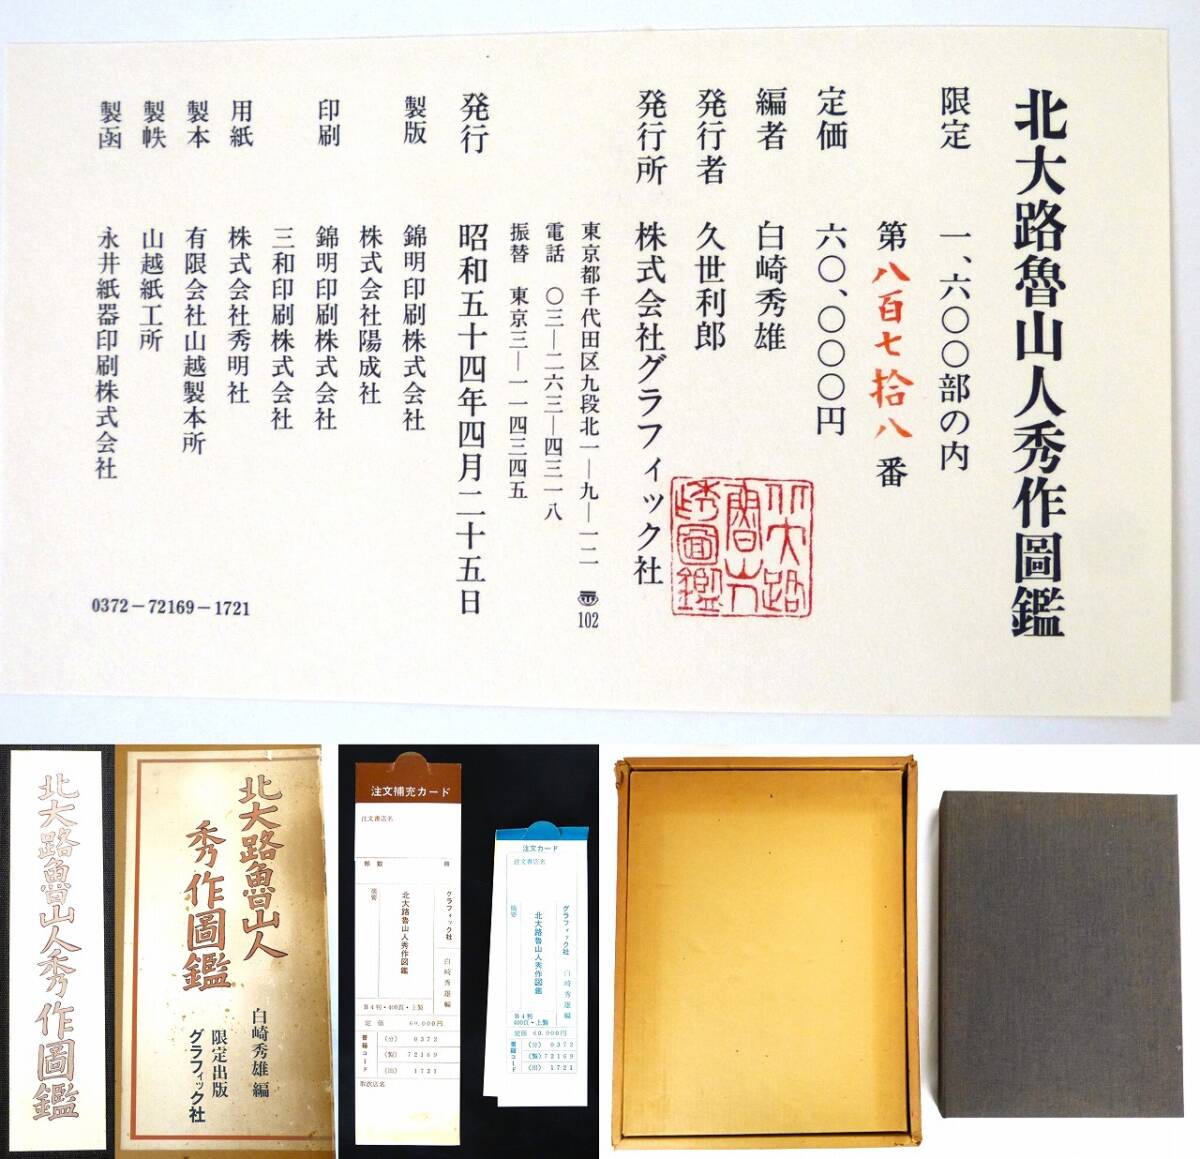 北大路魯山人秀作圖鑑
限定 一、六〇〇部の内
第八百七拾八番
定価 六〇、〇〇〇円
編者 白崎秀雄
発行者 久世利郎
発行所 株式会社グラフィック社
東京都千代田区九段北一―九―一二 〠102
電話 〇三―二六三―四三一八
振替 東京三―一一四三四五
発行 昭和五十四年四月二十五日
製版 錦明印刷株式会社
株式会社陽成社
印刷 錦明印刷株式会社
三和印刷株式会社
用紙 株式会社秀明社
製本 有限会社山越製本所
製帙 山越紙工所
製函 永井紙器印刷株式会社
0372-72169-1721
北大路魯山人秀作圖鑑
北大路魯山人
秀作圖鑑
白崎秀雄 編
限定出版
グラフィック社
注文補充カード
注文書店名
部数
グラフィック社 白崎秀雄編
北大路魯山人秀作図鑑
摘要
第4判・400頁・上製
定価 60.000円
書籍コード
(分) 0372
(製) 72169
(出) 1721
取次店名
注文カード
注文書店名
グラフィック社 白崎秀雄編
北大路魯山人秀作図鑑
摘要
第4判
400頁・上製
定価 60.000円
書籍コード
(分) 0372
(製) 72169
(出) 1721